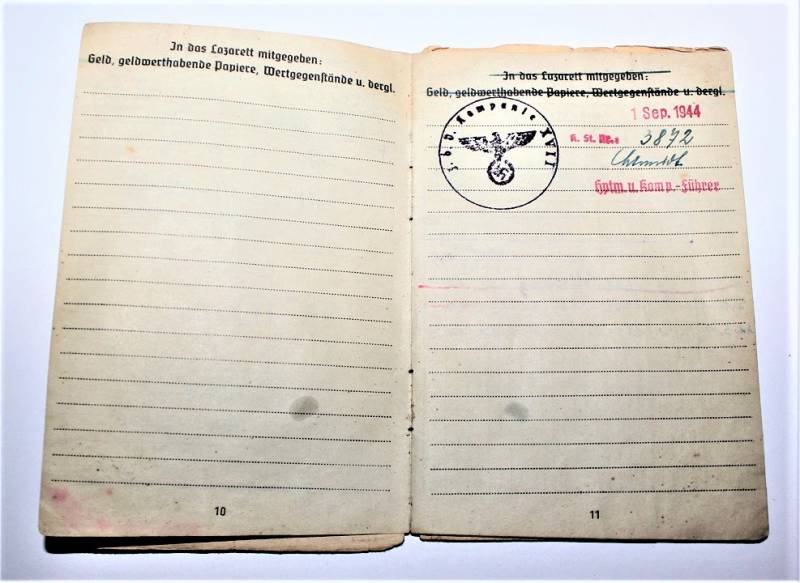 In das Lazarett mitgegeben:
Geld, geldwerthabende Papiere, Wertgegenstände u. dergl.
10
In das Lazarett mitgegeben:
Geld, geldwerthabende Papiere, Wertgegenstände u. dergl.
Kompanie XVII
1 Sep. 1944
K. St. Nr.: 3872
Hptm. u. Komp.-Führer
11